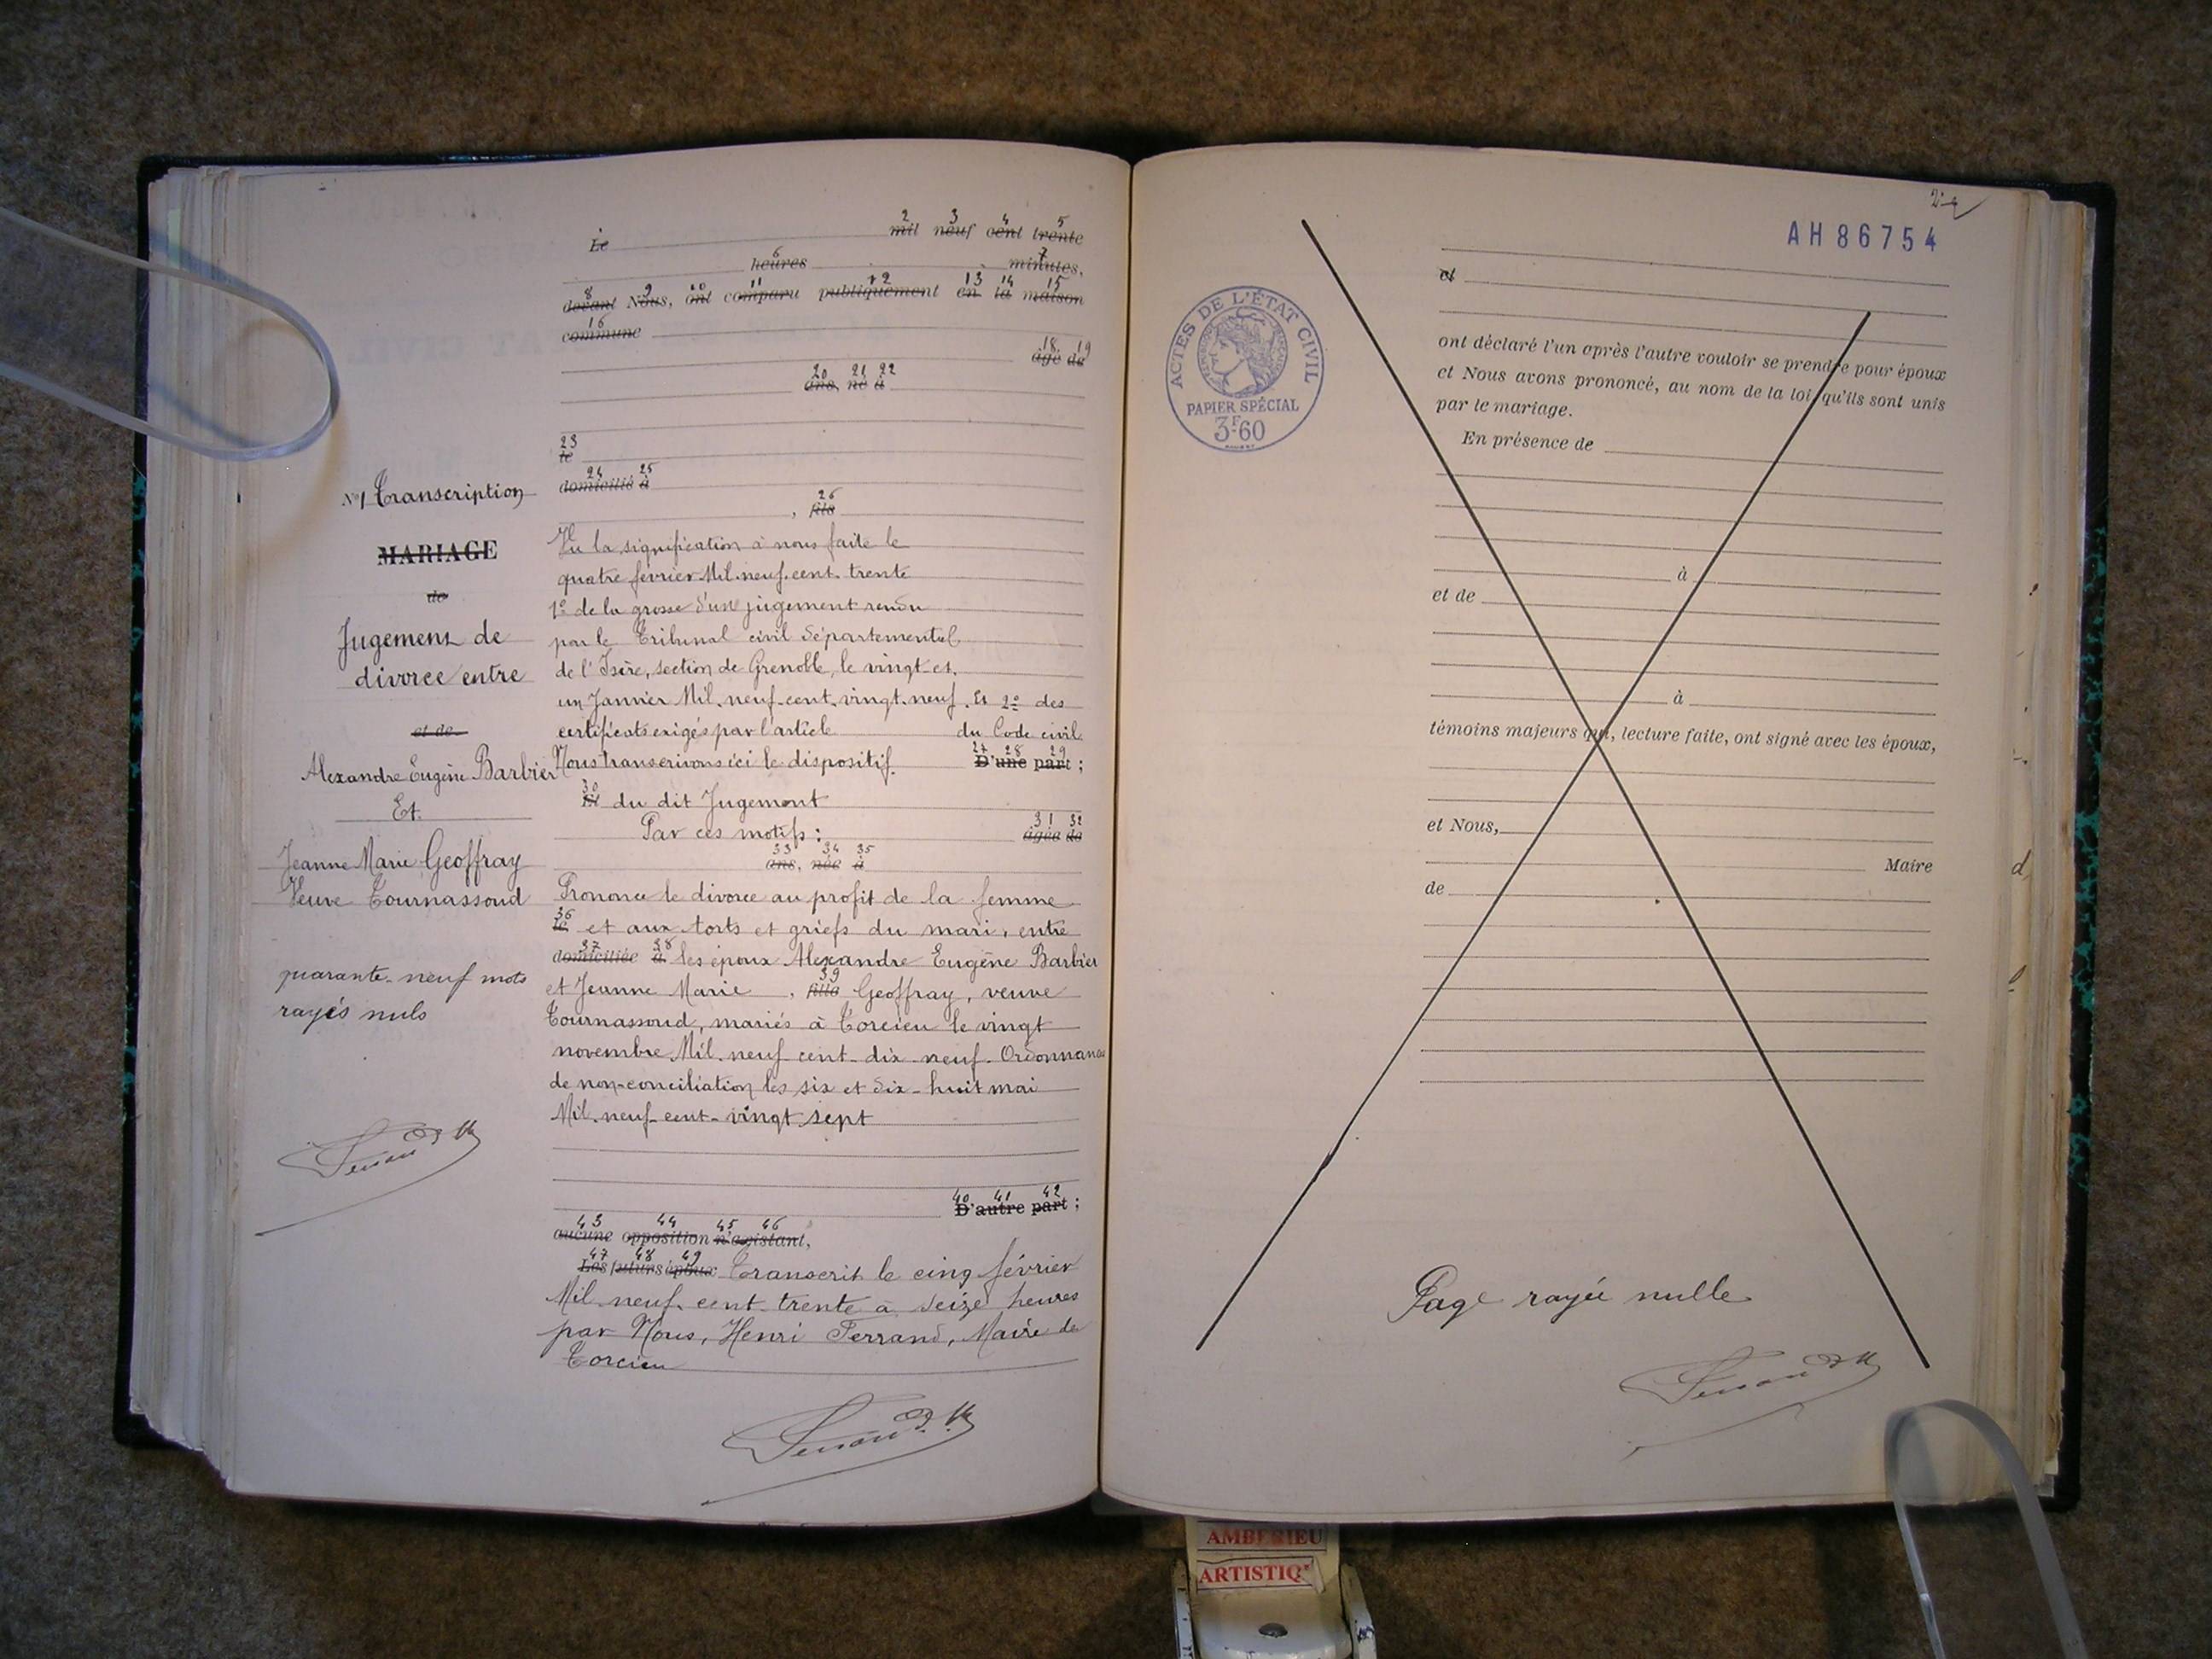 Le mil neuf cent trente
2 3 4 5
heures minutes,
6 7
devant Nous, ont comparu publiquement en la maison
8 9 10 11 12 13 14 15
commune
16
âgé de
18 19
ans, né à
20 21 22
le
23
domicilié à
24 25
, fils
26
N°1 Transcription
MARIAGE
de
Jugement de
divorce entre
et de
Alexandre Eugène Barbier
Et
Jeanne Marie Geoffray
Veuve Tournassoud
quarante-neuf mots
rayés nuls
Vu la signification à nous faite le
quatre février Mil neuf cent trente
1° de la grosse d'un jugement rendu
par le Tribunal civil départemental
de l'Isère, section de Grenoble, le vingt et
un Janvier Mil neuf cent vingt neuf. Et 2° des
certificats exigés par l'article du Code civil
Nous transcrivons ici le dispositif. D'une part ;
27 28 29
30
Et du dit Jugement
Par ces motifs : âgée de
31 32
ans, née à
33 34 35
Prononce le divorce au profit de la femme
36
le et aux torts et griefs du mari, entre
37 38
domiciliée à les époux Alexandre Eugène Barbier
39
et Jeanne Marie , fille Geoffray, veuve
Tournassoud, mariés à Torcieu le vingt
novembre Mil neuf cent dix neuf. Ordonnance
de non-conciliation les six et dix-huit mai
Mil neuf cent vingt sept
40 41 42
D'autre part ;
43 44 45 46
aucune opposition n'existant,
47 48 49
Les futurs époux Transcrit le cinq février
Mil neuf cent trente à seize heures
par Nous, Henri Ferrand, Maire de
Torcieu
AH 86754
ACTES DE L'ÉTAT CIVIL
PAPIER SPÉCIAL
3F60
et
ont déclaré l'un après l'autre vouloir se prendre pour époux
et Nous avons prononcé, au nom de la loi, qu'ils sont unis
par le mariage.
En présence de
à
et de
à
témoins majeurs qui, lecture faite, ont signé avec les époux,
et Nous,
Maire
de
Page rayée nulle
AMBERIEU
ARTISTIQ